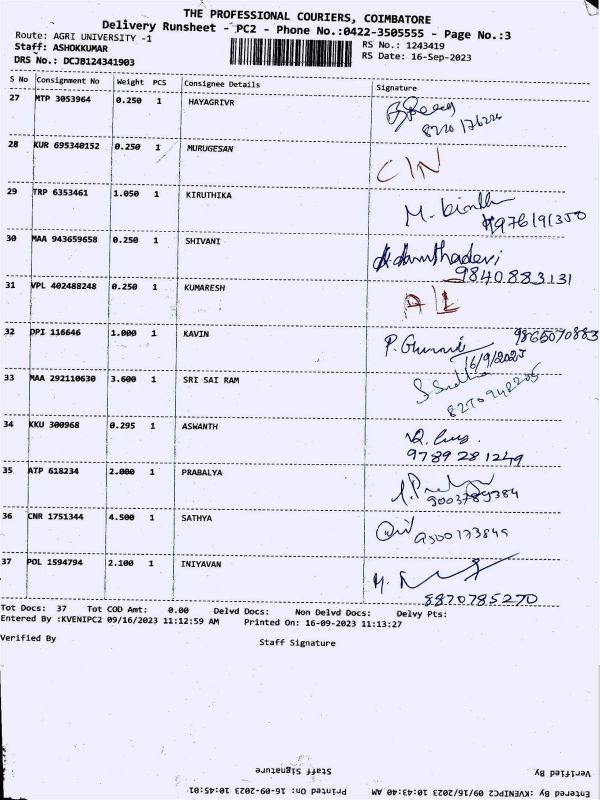 THE PROFESSIONAL COURIERS, COIMBATORE
Delivery Runsheet - PC2 - Phone No.:0422-3505555 - Page No.:3
Route: AGRI UNIVERSITY -1 RS No.: 1243419
Staff: ASHOKKUMAR RS Date: 16-Sep-2023
DRS No.: DCJB124341903
S No Consignment No Weight PCS Consignee Details Signature
27 MTP 3053964 0.250 1 HAYAGRIVR
28 KUR 695340152 0.250 1 MURUGESAN CIN
29 TRP 6353461 1.050 1 KIRUTHIKA M.
30 MAA 943659658 0.250 1 SHIVANI
9840883131
31 VPL 402488248 0.250 1 KUMARESH
32 DPI 116646 1.000 1 KAVIN P. 9865070883
16/9/2023
33 MAA 292110630 3.600 1 SRI SAI RAM
34 KKU 300968 0.295 1 ASWANTH
9789281249
35 ATP 618234 2.000 1 PRABALYA
9003789384
36 CNR 1751344 4.500 1 SATHYA
37 POL 1594794 2.100 1 INIYAVAN
8870785270
Tot Docs: 37 Tot COD Amt: 0.00 Delvd Docs: Non Delvd Docs: Delvy Pts:
Entered By :KVENIPC2 09/16/2023 11:12:59 AM Printed On: 16-09-2023 11:13:27
Verified By Staff Signature
Verified By Staff Signature
Entered By :KVENIPC2 09/16/2023 10:43:40 AM Printed On: 16-09-2023 10:45:01